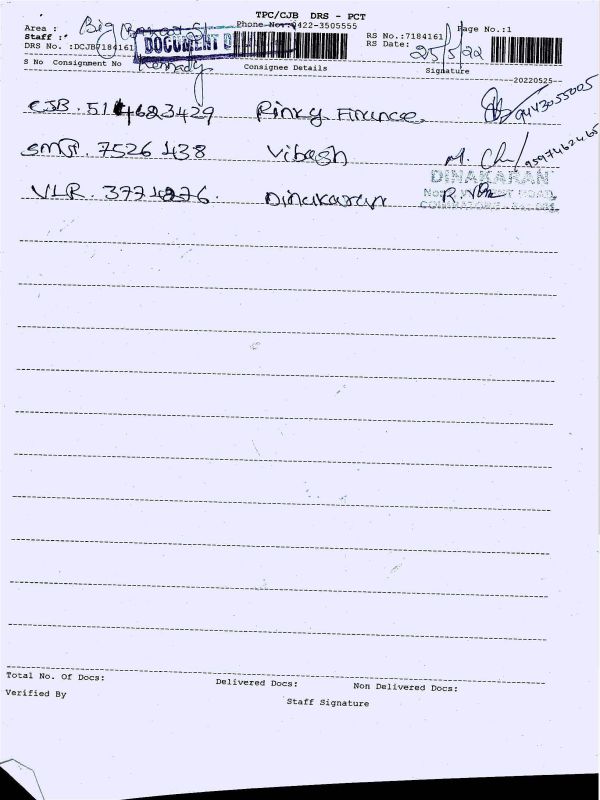 TPC/CJB DRS - PCT
Area : Big Bazaar St Phone No.:0422-3505555 Page No.:1
Staff : RS No.:7184161
DRS No. :DCJB7184161 DOCUMENT RS Date: 25/5/22
S No Consignment No Kennady Consignee Details Signature
--20220525--
CJB. 514623429 Pinky Finance 9443055005
SMG. 7526 1438 Vibash M. 9597462465
DINAKARAN
VLR. 3771276. Dinakaran R. ROAD,
COIMBATORE
Total No. Of Docs: Delivered Docs: Non Delivered Docs:
Verified By Staff Signature